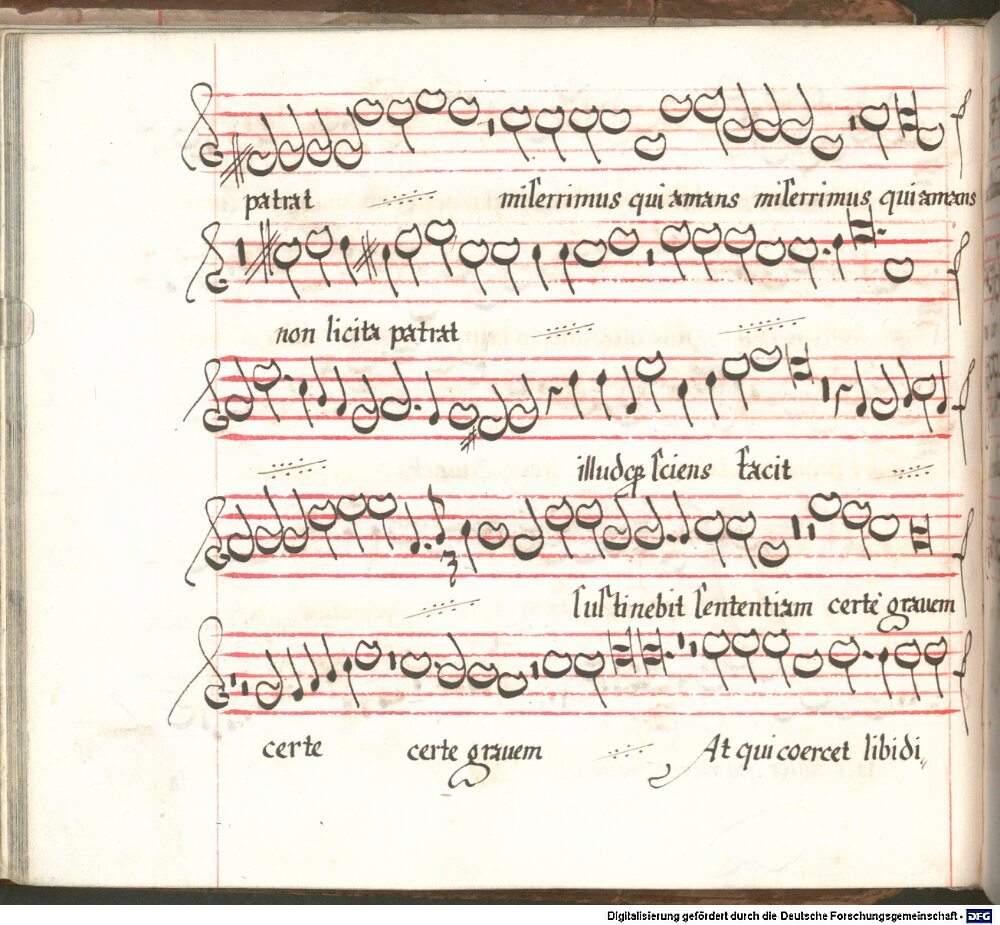 patrat miserrimus qui amans miserrimus qui amans
non licita patrat
illudq; sciens facit
sustinebit sententiam certè grauem
certe certe grauem At qui coercet libidi„
Digitalisierung gefördert durch die Deutsche Forschungsgemeinschaft - DFG